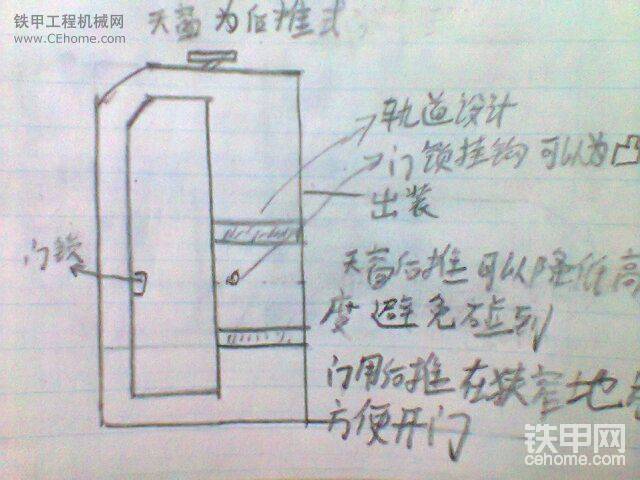 铁甲工程机械网
www.CEhome.com
天窗为后推式
轨道设计
门锁挂钩可以为凸
出装
门锁
天窗后推可以降低高
度避免碰到
门用后推在狭窄地
方便开门
铁甲网
cehome.com